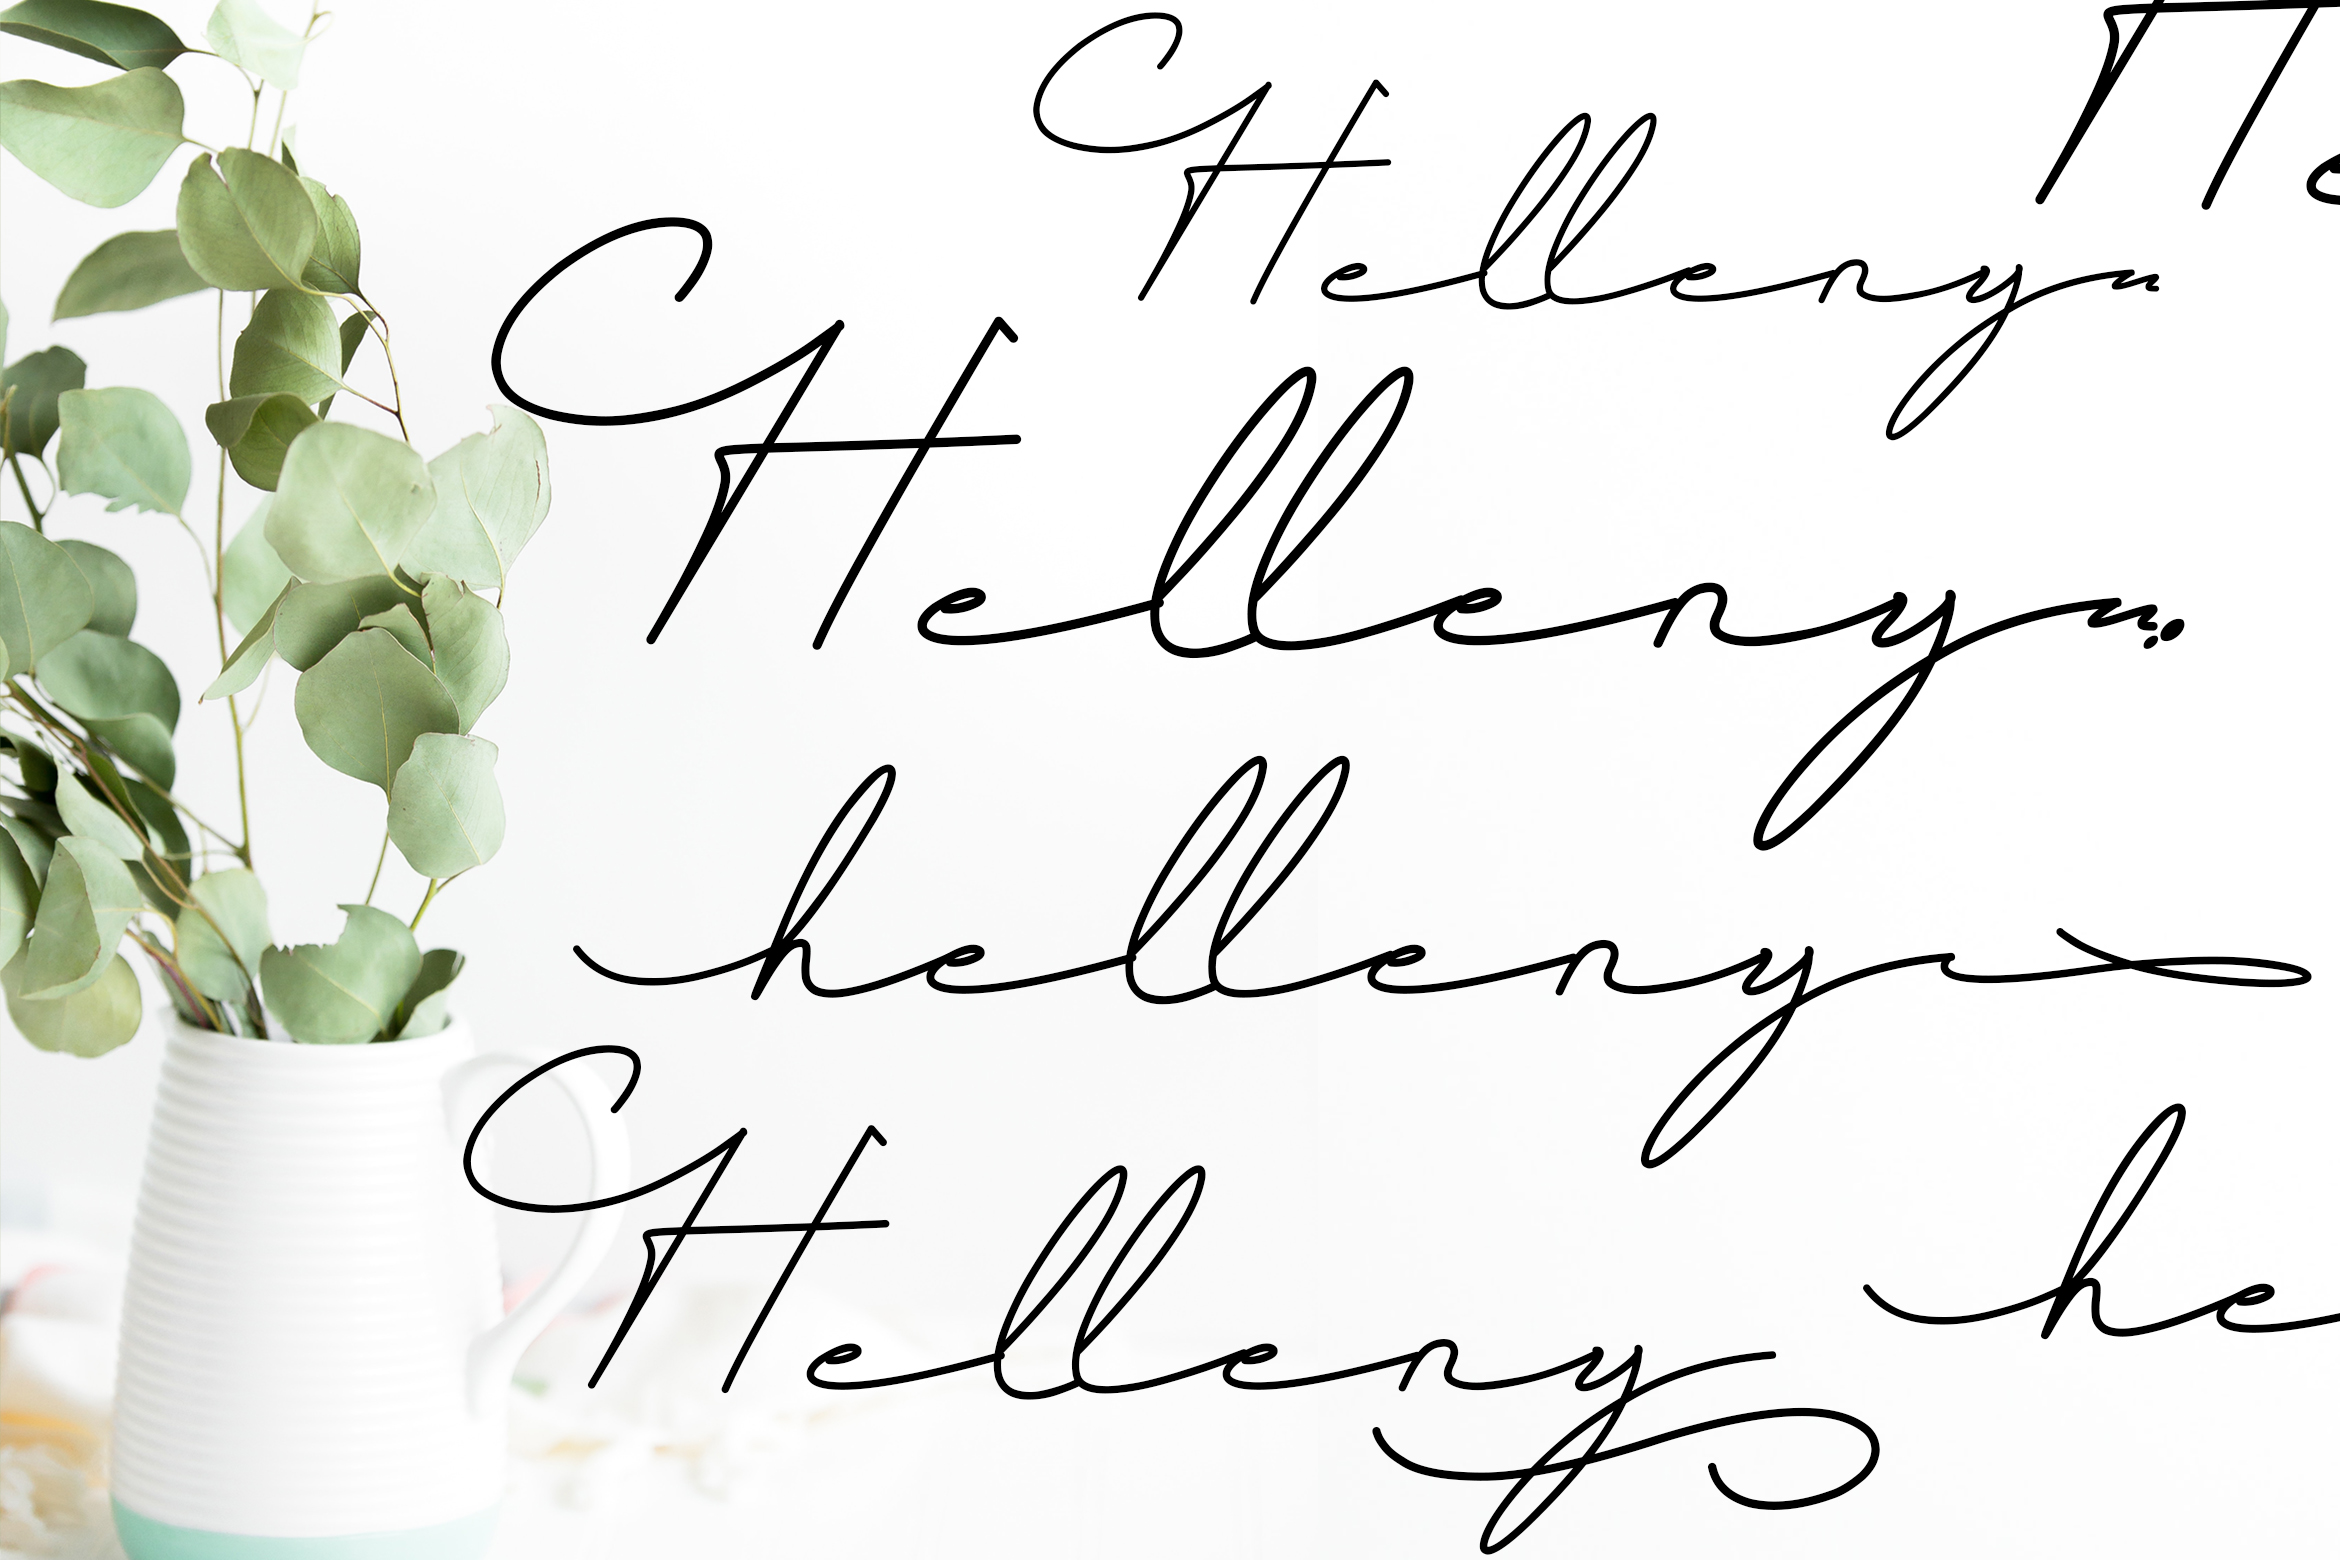 He
Helleny
Helleny
helleny
Helleny
he